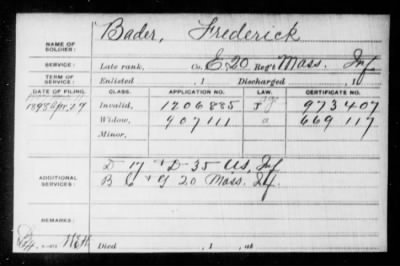 NAME OF SOLDIER: Bader, Frederick
SERVICE: Late rank, Co. E, 20 Reg't Mass. Inf
TERM OF SERVICE: Enlisted , 1 Discharged , 1
DATE OF FILING. CLASS. APPLICATION NO. LAW. CERTIFICATE NO.
1898 Apr. 27 Invalid, 1206885 973407
Widow, 907111 a 669117
Minor,
ADDITIONAL SERVICES: D 17 + D-35 US, Inf
B E + G 20 Mass. Inf.
REMARKS:
Died , 1 , at